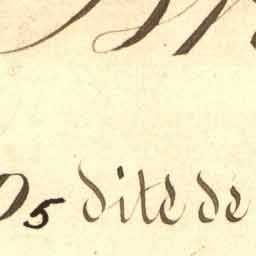 5 dite de